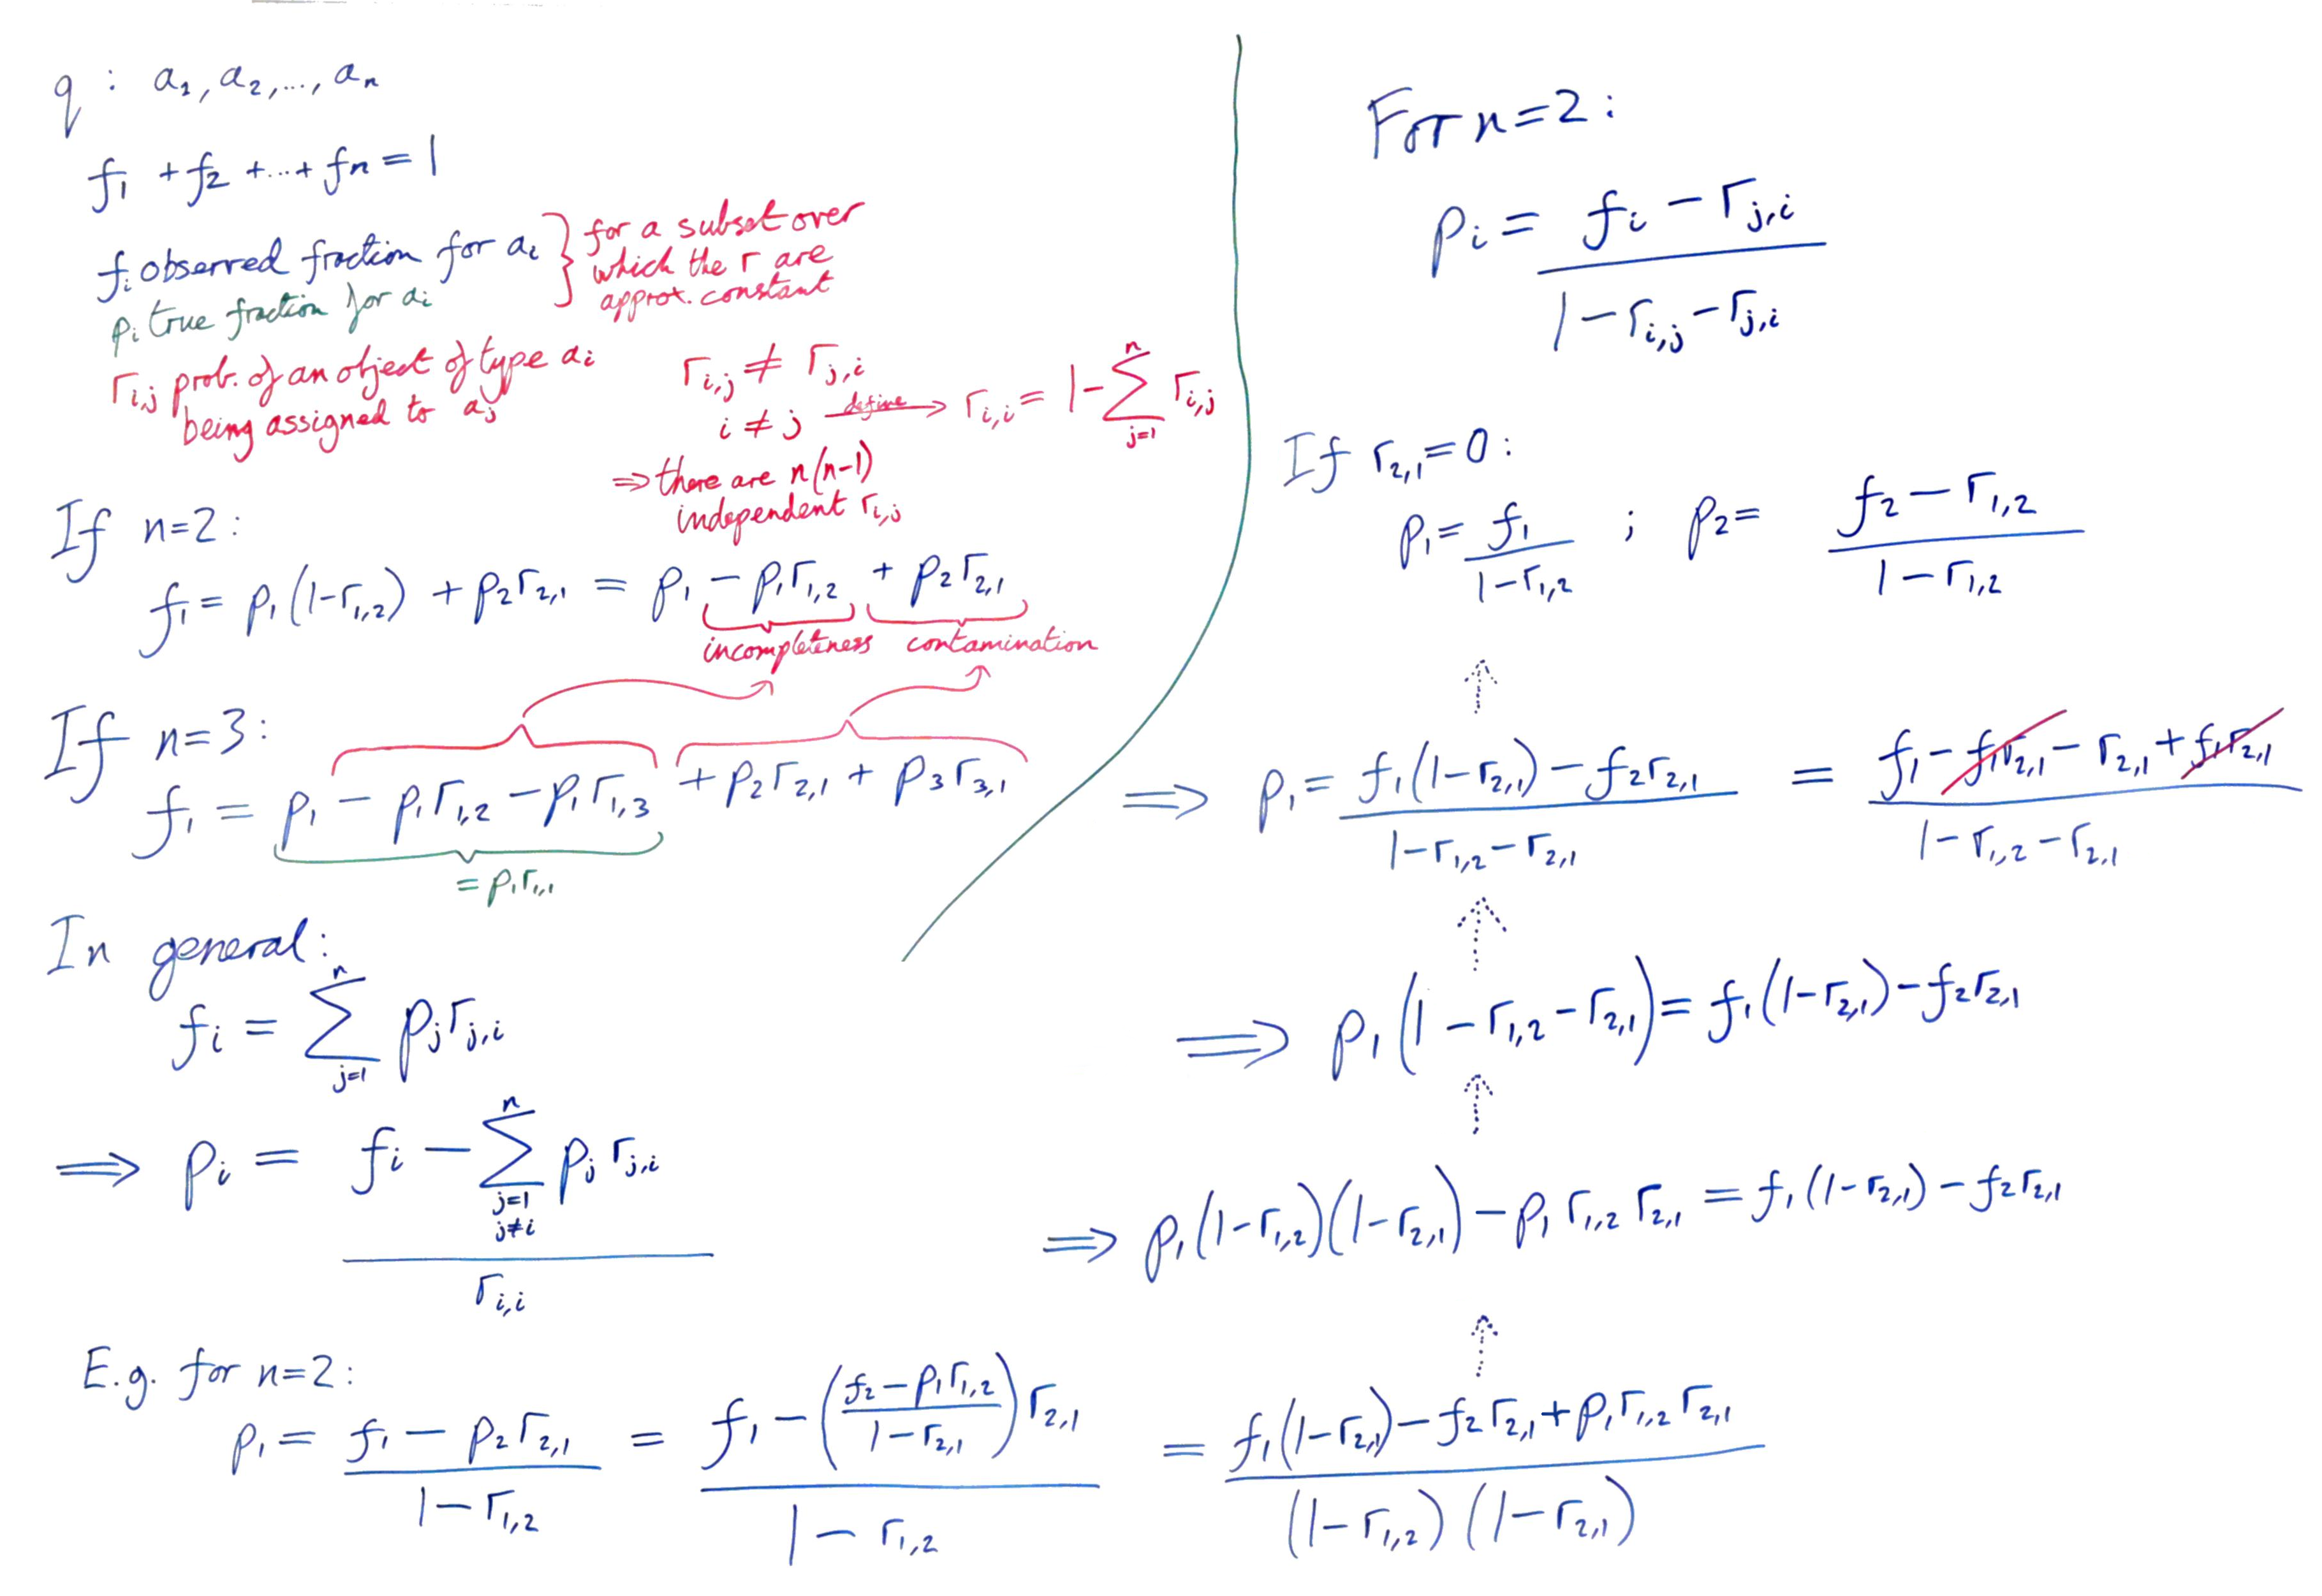 q : a₁, a₂, ..., aₙ
f₁ + f₂ + ... + fₙ = 1
fᵢ observed fraction for aᵢ
pᵢ true fraction for aᵢ
} for a subset over
which the r are
approx. constant
r_{i,j} prob. of an object of type aᵢ
being assigned to aⱼ
r_{i,j} ≠ r_{j,i}
i ≠ j define → r_{i,i} = 1 - ∑_{j=1}^{n} r_{i,j}
⇒ there are n(n-1)
independent r_{i,j}
If n=2:
f₁ = p₁(1-r_{1,2}) + p₂r_{2,1} = p₁ - p₁r_{1,2} + p₂r_{2,1}
incompleteness contamination
If n=3:
f₁ = p₁ - p₁r_{1,2} - p₁r_{1,3} + p₂r_{2,1} + p₃r_{3,1}
= p₁r_{1,1}
In general:
fᵢ = ∑_{j=1}^{n} pⱼr_{j,i}
⇒ pᵢ = (fᵢ - ∑_{j=1, j≠i}^{n} pⱼ r_{j,i}) / r_{i,i}
E.g. for n=2:
p₁ = (f₁ - p₂r_{2,1}) / (1-r_{1,2}) = (f₁ - ((f₂ - p₁r_{1,2}) / (1-r_{2,1})) r_{2,1}) / (1 - r_{1,2}) = (f₁(1-r_{2,1}) - f₂r_{2,1} + p₁r_{1,2}r_{2,1}) / ((1-r_{1,2})(1-r_{2,1}))
⇒ p₁(1-r_{1,2})(1-r_{2,1}) - p₁ r_{1,2} r_{2,1} = f₁(1-r_{2,1}) - f₂r_{2,1}
⇒ p₁(1 - r_{1,2} - r_{2,1}) = f₁(1-r_{2,1}) - f₂r_{2,1}
⇒ p₁ = (f₁(1-r_{2,1}) - f₂r_{2,1}) / (1-r_{1,2}-r_{2,1}) = (f₁ - f₁r_{2,1} - r_{2,1} + f₁r_{2,1}) / (1-r_{1,2}-r_{2,1})
If r_{2,1}=0:
p₁ = f₁ / (1-r_{1,2}) ; p₂ = (f₂ - r_{1,2}) / (1-r_{1,2})
For n=2:
pᵢ = (fᵢ - r_{j,i}) / (1-r_{i,j}-r_{j,i})